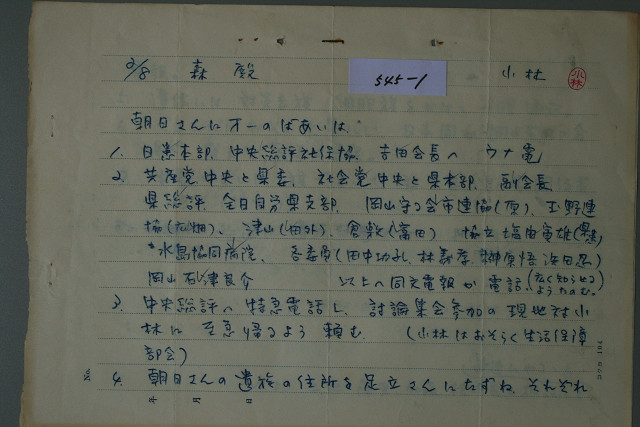 2/8 森殿 545-1 小林 小林
朝日さんに万一のばあいは、
1. 日患本部、中央総評社保協、吉田会長へ ウナ電
2. 共産党中央と県委、社会党中央と県本部、副会長、
県総評、全日自労県支部、岡山守る会市連協(原)、玉野連
協(広畑)、津山(内外)、倉敷(富田) 協立
水島協同病院、各委員(田中 林 榊原悟 浜田忍)
岡山 石津良介 以上へ同文電報か電話。(広く知らせるようたのむ。)
3. 中央総評へ特急電話し、討論集会参加の現地対小
林に至急帰るよう頼む。 (小林はおそらく生活保障
部会)
4. 朝日さんの遺族の住所を足立さんにたずね、それぞれ
No. 年 月 日